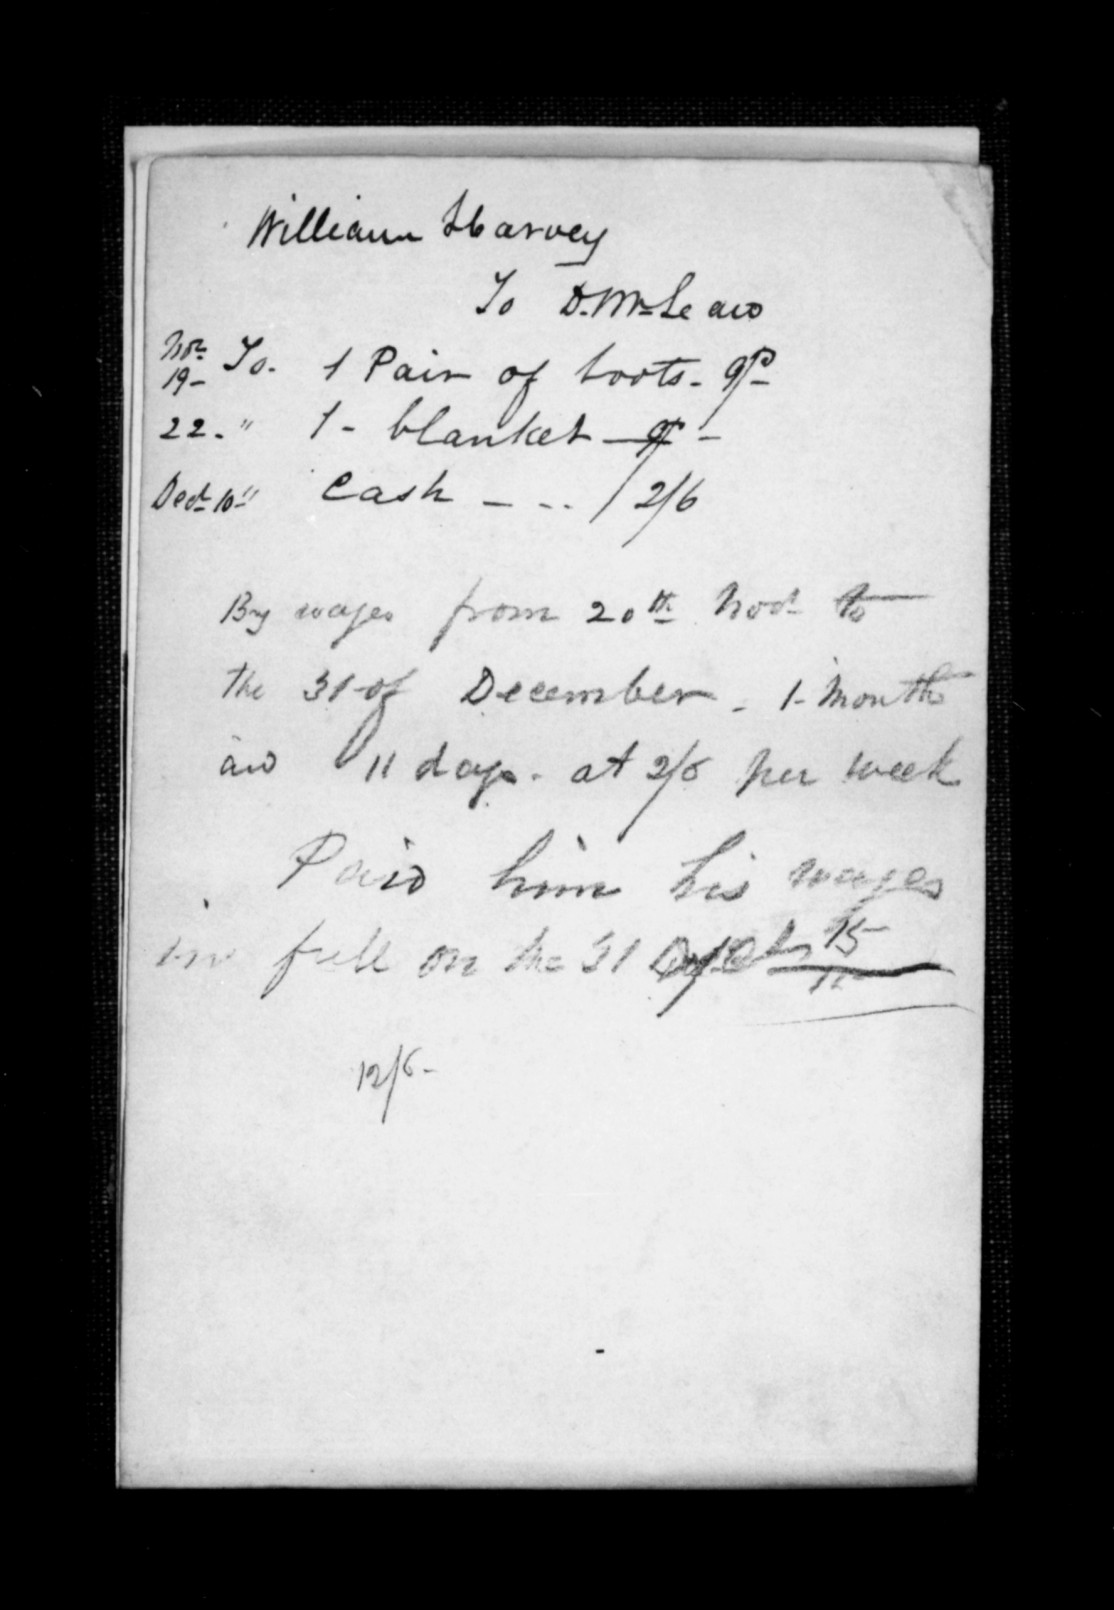 William Harvey
To D. McLean
Novr 19 - To. 1 Pair of boots - 9/-
22 - " 1 - blanket - 9/-
Decr 10 " Cash - - - 12/6
By wages from 20th Novr to
the 31 of December - 1 Month
and 11 days - at 2/6 per week
Paid him his wages
in full on the 31 15
12/6 -